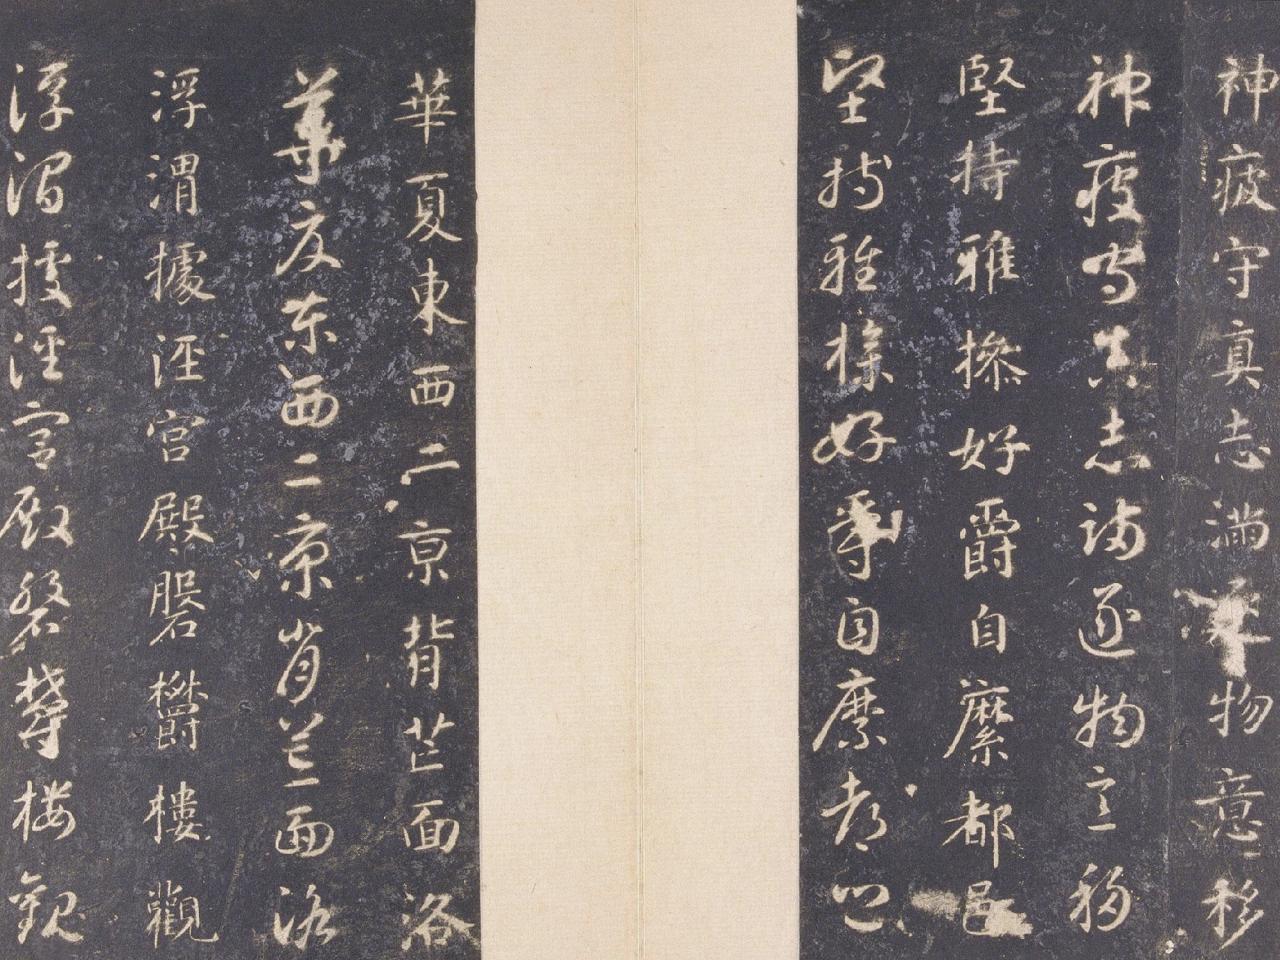 神疲守真志滿物意移
神疲守真志滿逐物意移
堅持雅操好爵自縻都邑
堅持雅操好爵自縻都邑
華夏東西二京背芒面洛
華夏東西二京背芒面洛
浮渭據涇宮殿磐鬱樓觀
浮渭據涇宮殿磐鬱樓觀